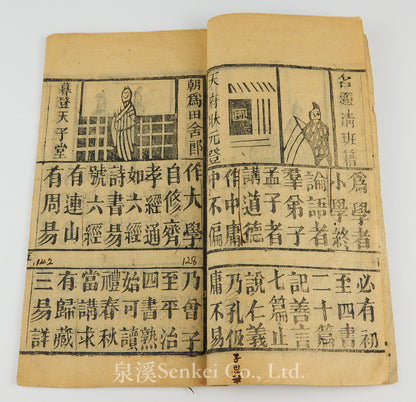 名題清班
天府狀元登
爲學者
必有初
小學終
至四書
論語者
二十篇
羣弟子
記善言
孟子者
七篇止
講道德
說仁義
作中庸
乃孔伋
中不偏
庸不易
朝爲田舍郎
暮登天子堂
作大學
乃曾子
自修齊
至平治
孝經通
四書熟
如六經
始可讀
詩書易
禮春秋
號六經
當講求
有連山
有歸藏
有周易
三易詳
128
142
泉溪Senkei Co., Ltd.